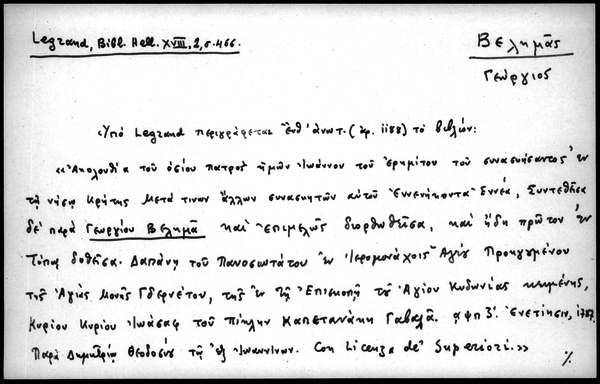 Legrand, Bibl. Hell. XVIII, 2, σ. 466.
Βελημᾶς
Γεώργιος
Ὑπό Legrand περιγράφεται ἔνθ' ἀνωτ. (ἀρ. 1188) τό βιβλίον:
«Ἀκολουθία τοῦ ὁσίου πατρός ἡμῶν Ἰωάννου τοῦ ἐρημίτου τοῦ συνασκήσαντος ἐν
τῇ νήσῳ Κρήτης μετά τινων ἄλλων συνασκητῶν αὐτοῦ ἐννενήκοντα ἐννέα, Συντεθεῖσα
δέ παρά Γεωργίου Βελημᾶ καί ἐπιμελῶς διορθωθεῖσα, καί ἤδη πρῶτον ἐν
τύποις δοθεῖσα. Δαπάνῃ τοῦ Πανοσιωτάτου ἐν Ἱερομονάχοις Ἁγίου Προηγουμένου
τῆς Ἁγίας Μονῆς Γδερνέτου, τῆς ἐν τῇ Ἐπισκοπῇ τοῦ Ἁγίου Κυδωνίας κειμένης,
Κυρίου Κυρίου Ἰωάσαφ τοῦ πίκλην Καπετανάκη Γαβαλᾶ. ᾳψπζ'. Ἐνετίησιν, 1787.
Παρά Δημητρίῳ Θεοδοσίου τῷ ἐξ Ἰωαννίνων. Con Licenza de' Superiori.»
%